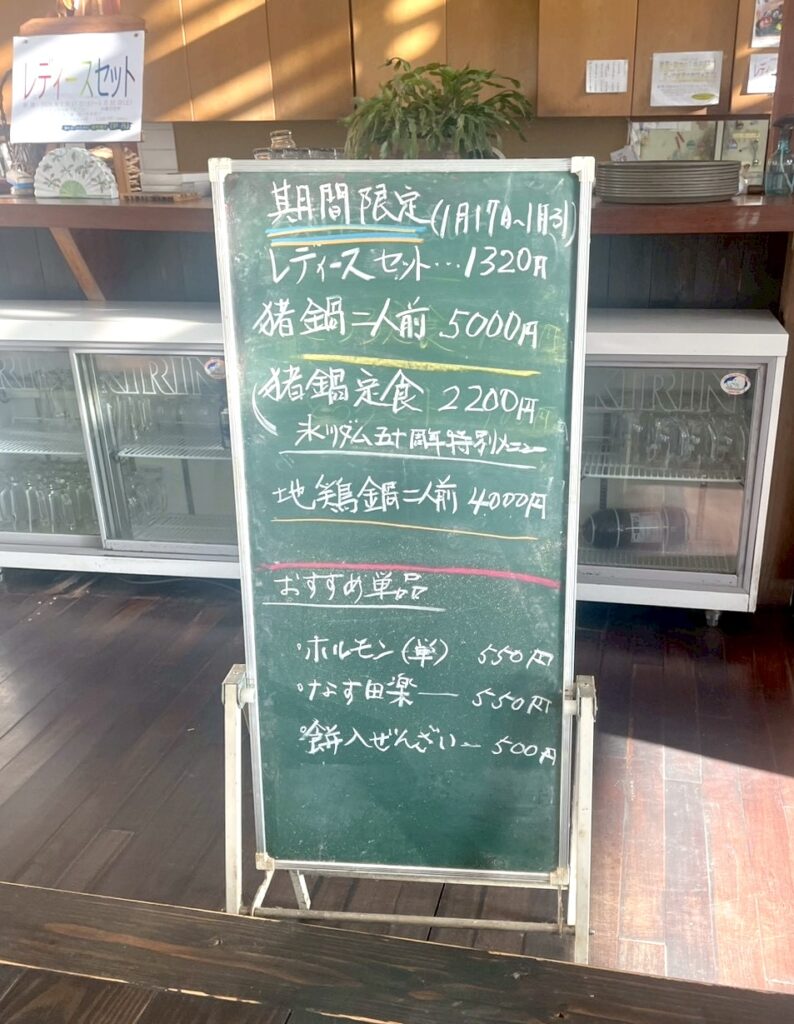 レディースセット
期間限定(1月17日~1月31)
レディースセット…1320円
猪鍋二人前 5000円
猪鍋定食 2200円
五十周年特別メニュー
地鶏鍋二人前 4000円
おすすめ単品
・ホルモン(単) 550円
・なす田楽— 550円
・餅入ぜんざい— 500円
KIRIN
KIRIN